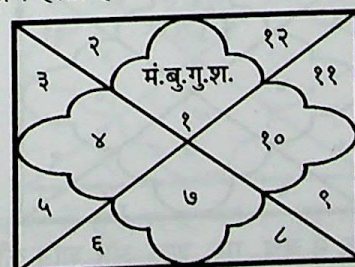 २ १२
३ मं.बु.गु.श. ११
१
४ १०
७
५ ९
६ ८